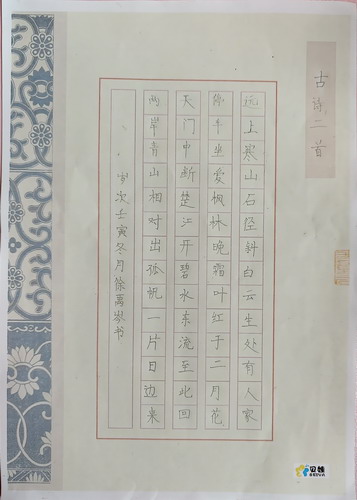 古诗二首
远上寒山石径斜白云生处有人家
停车坐爱枫林晚霜叶红于二月花
天门中断楚江开碧水东流至此回
两岸青山相对出孤帆一片日边来
岁次壬寅冬月徐禹岑书
贝雅